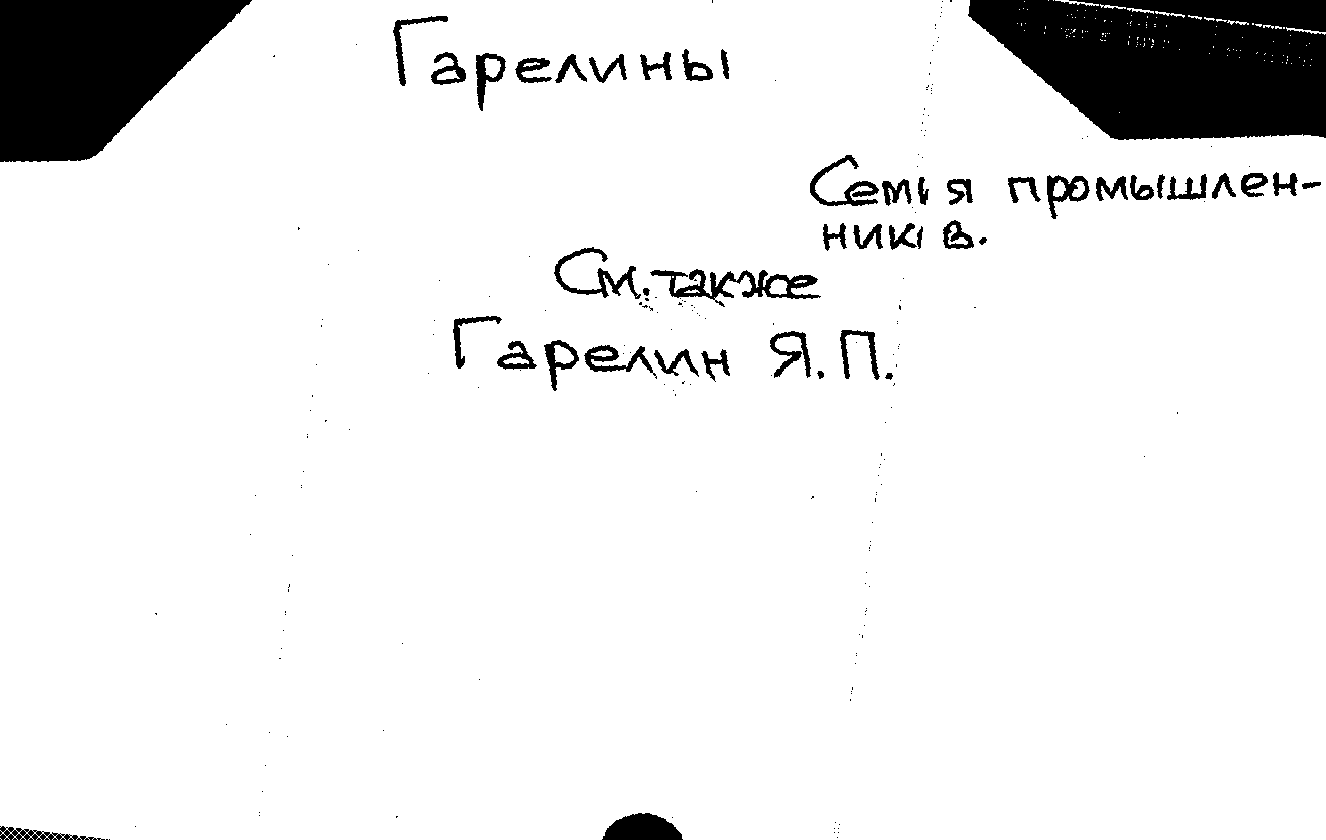 Гарелины
Семья промышлен-
ников.
См. также
Гарелин Я.П.